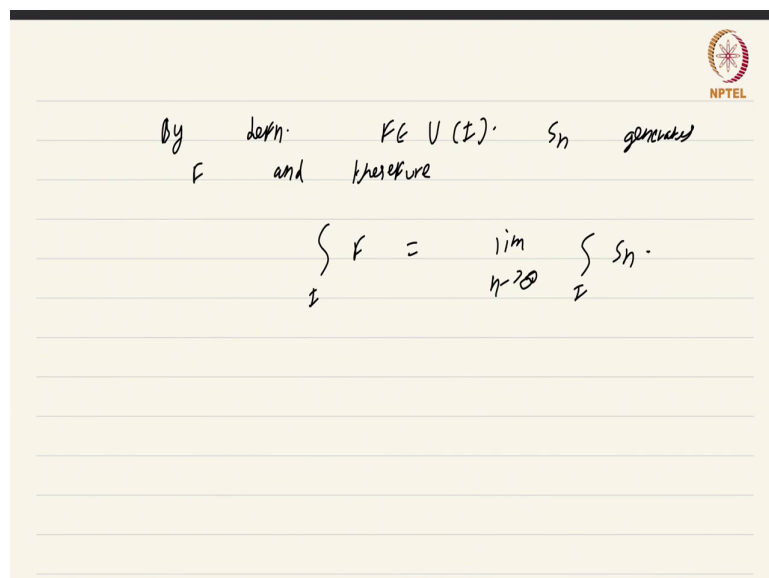 NPTEL
By defn. F ∈ U (I). Sn generates
F and therefore
∫_I F = lim_{n->∞} ∫_I Sn.